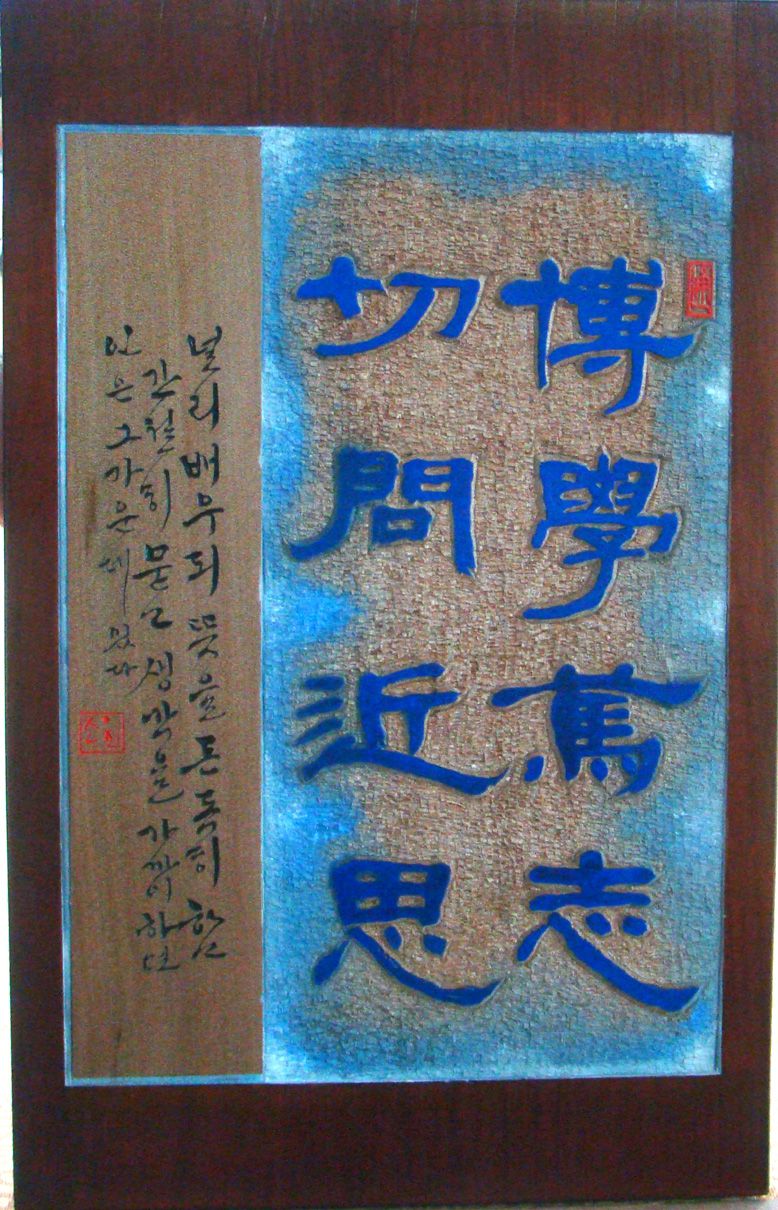 博學篤志
切問近思
널리 배우되 뜻을 돈독히 하고
간절히 묻고 생각을 가까이 하면
인은 그 가운데 있다